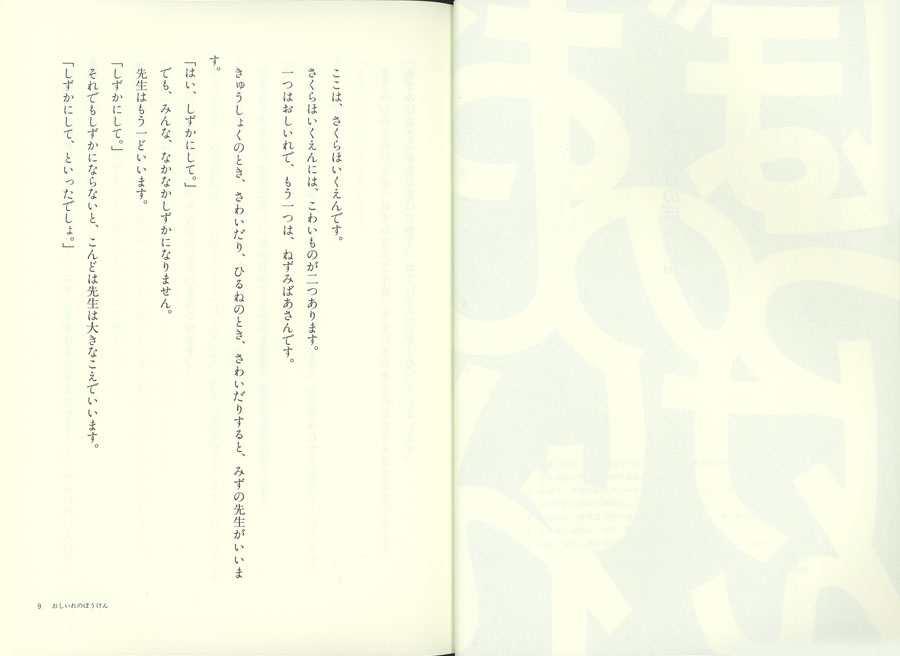 ここは、さくらほいくえんです。
さくらほいくえんには、こわいものが二つあります。
一つはおしいれで、もう一つは、ねずみばあさんです。
きゅうしょくのとき、さわいだり、ひるねのとき、さわいだりすると、みずの先生がいいま
す。
「はい、しずかにして。」
でも、みんな、なかなかしずかになりません。
先生はもう一どいいます。
「しずかにして。」
それでもしずかにならないと、こんどは先生は大きなこえでいいます。
「しずかにして、といったでしょ。」
9 おしいれのぼうけん